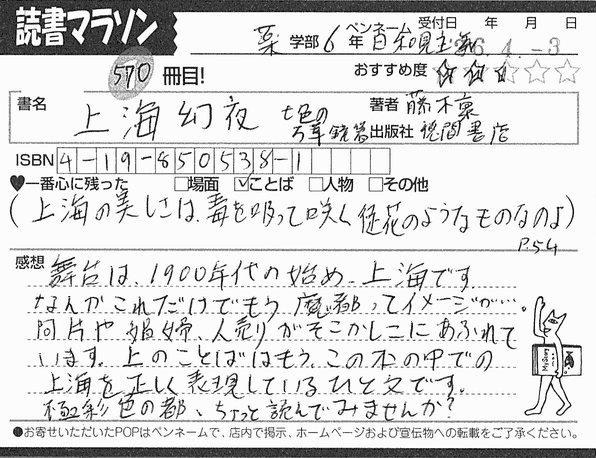 読書マラソン
薬 学部 6 年 ペンネーム 日和見主義 受付日 年 月 日
26.4.-3
570 冊目! おすすめ度 ★★☆☆☆
書名 上海幻夜 七色の万華鏡篇
著者 藤木稟
出版社 徳間書店
ISBN 4-19-850538-1
♥一番心に残った □場面 ☑ことば □人物 □その他
(上海の美しさは、毒を吸って咲く徒花のようなものなのよ)
P.54
感想 舞台は、1900年代の始め、上海です
なんかこれだけでもう魔都ってイメージが…。
阿片や娼婦、人売りがそこかしこにあふれて
います。上のことばはもう、この本の中での
上海を正しく表現しているひと文です。
極彩色の都、ちょっと読んでみませんか?
●お寄せいただいたPOPはペンネームで、店内で掲示、ホームページおよび宣伝物への転載をご了承ください。